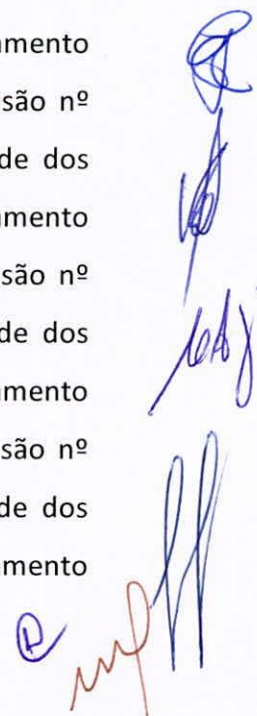 amento
são nº
de dos
amento
são nº
de dos
amento
são nº
de dos
amento